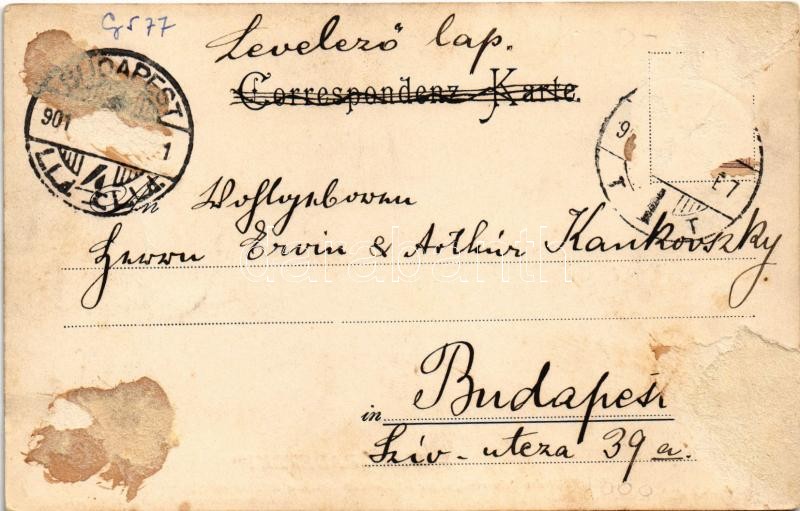 G577
Levelező lap.
Correspondenz-Karte.
BUDAPEST
901
1
Wohlgeboren
Herrn Ervin & Arthúr Kankovszky
in Budapest
Szív-utcza 39 a.
darabanth